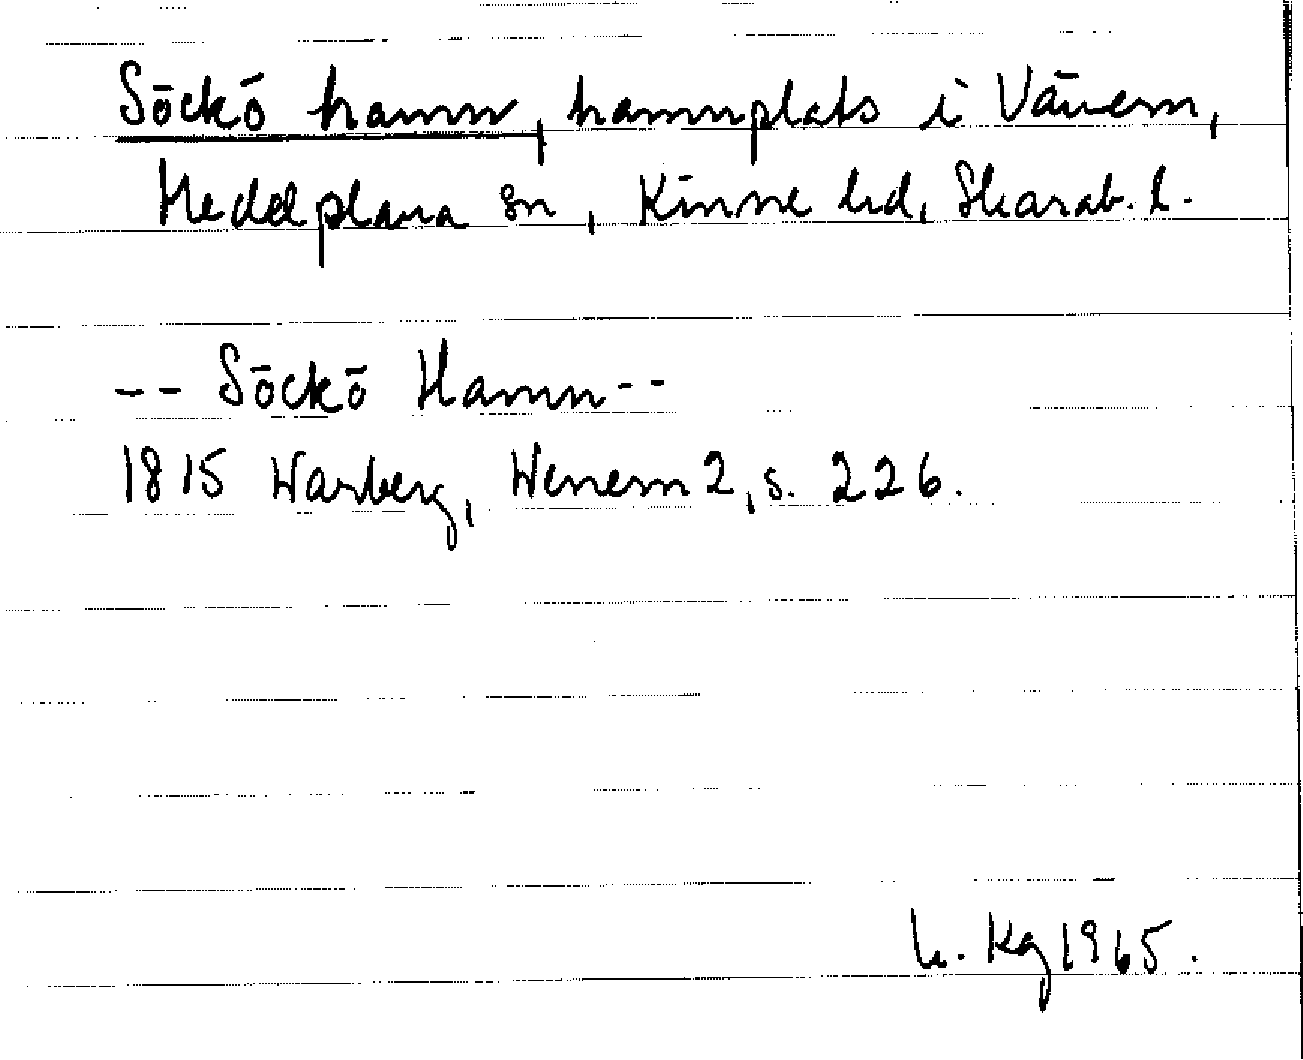 Söckö hamn, hamnplats i Vänern,
Medelplana sn, Kinne hd, Skarab. l.
-- Söckö Hamn --
1815 Warberg, Wenern 2, s. 226.
Kg 1965.